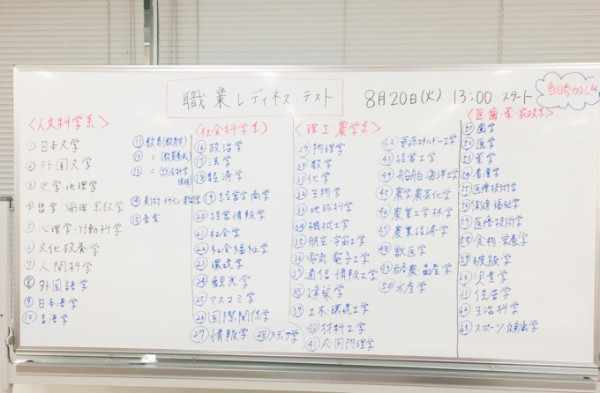 職業レディネステスト
8月20日(火) 13:00 スタート
当日参加OK
<人文科学系>
①日本文学
②外国文学
③史学・地理学
④哲学・倫理・宗教学
⑤心理学・行動科学
⑥文化教養学
⑦人間科学
⑧外国語学
⑨日本語学
⑩言語学
⑪教育(教育学)
⑫〃(教員養成)
⑬〃(総合科学課程)
⑮音楽
<社会科学系>
⑯政治学
⑰法学
⑱経済学
⑲経営学・商学
⑳経営情報学
㉑社会学
㉒社会福祉学
㉓環境学
㉔観光学
㉕マスコミ学
㉖国際関係学
㉗情報学
㉘メディア学
<理工農学系>
㉙物理学
㉚数学
㉛化学
㉜生物学
㉝地球科学
㉞機械工学
㉟航空・宇宙工学
㊱電気・電子工学
㊲通信・情報工学
㊳建築学
㊴土木・環境工学
㊵材料工学
㊶応用物理学
㊷資源・エネルギー工学
㊸経営工学
㊹船舶・海洋工学
㊺農学・農芸化学
㊻農業工学・林学
㊼農業経済学
㊽獣医学
㊾酪農・畜産学
㊿水産学
歯学
医学
薬学
看護学
医療技術学
保健・福祉学
医療技術学
食物・栄養学
被服学
児童学
住居学
生活科学
スポーツ・健康学